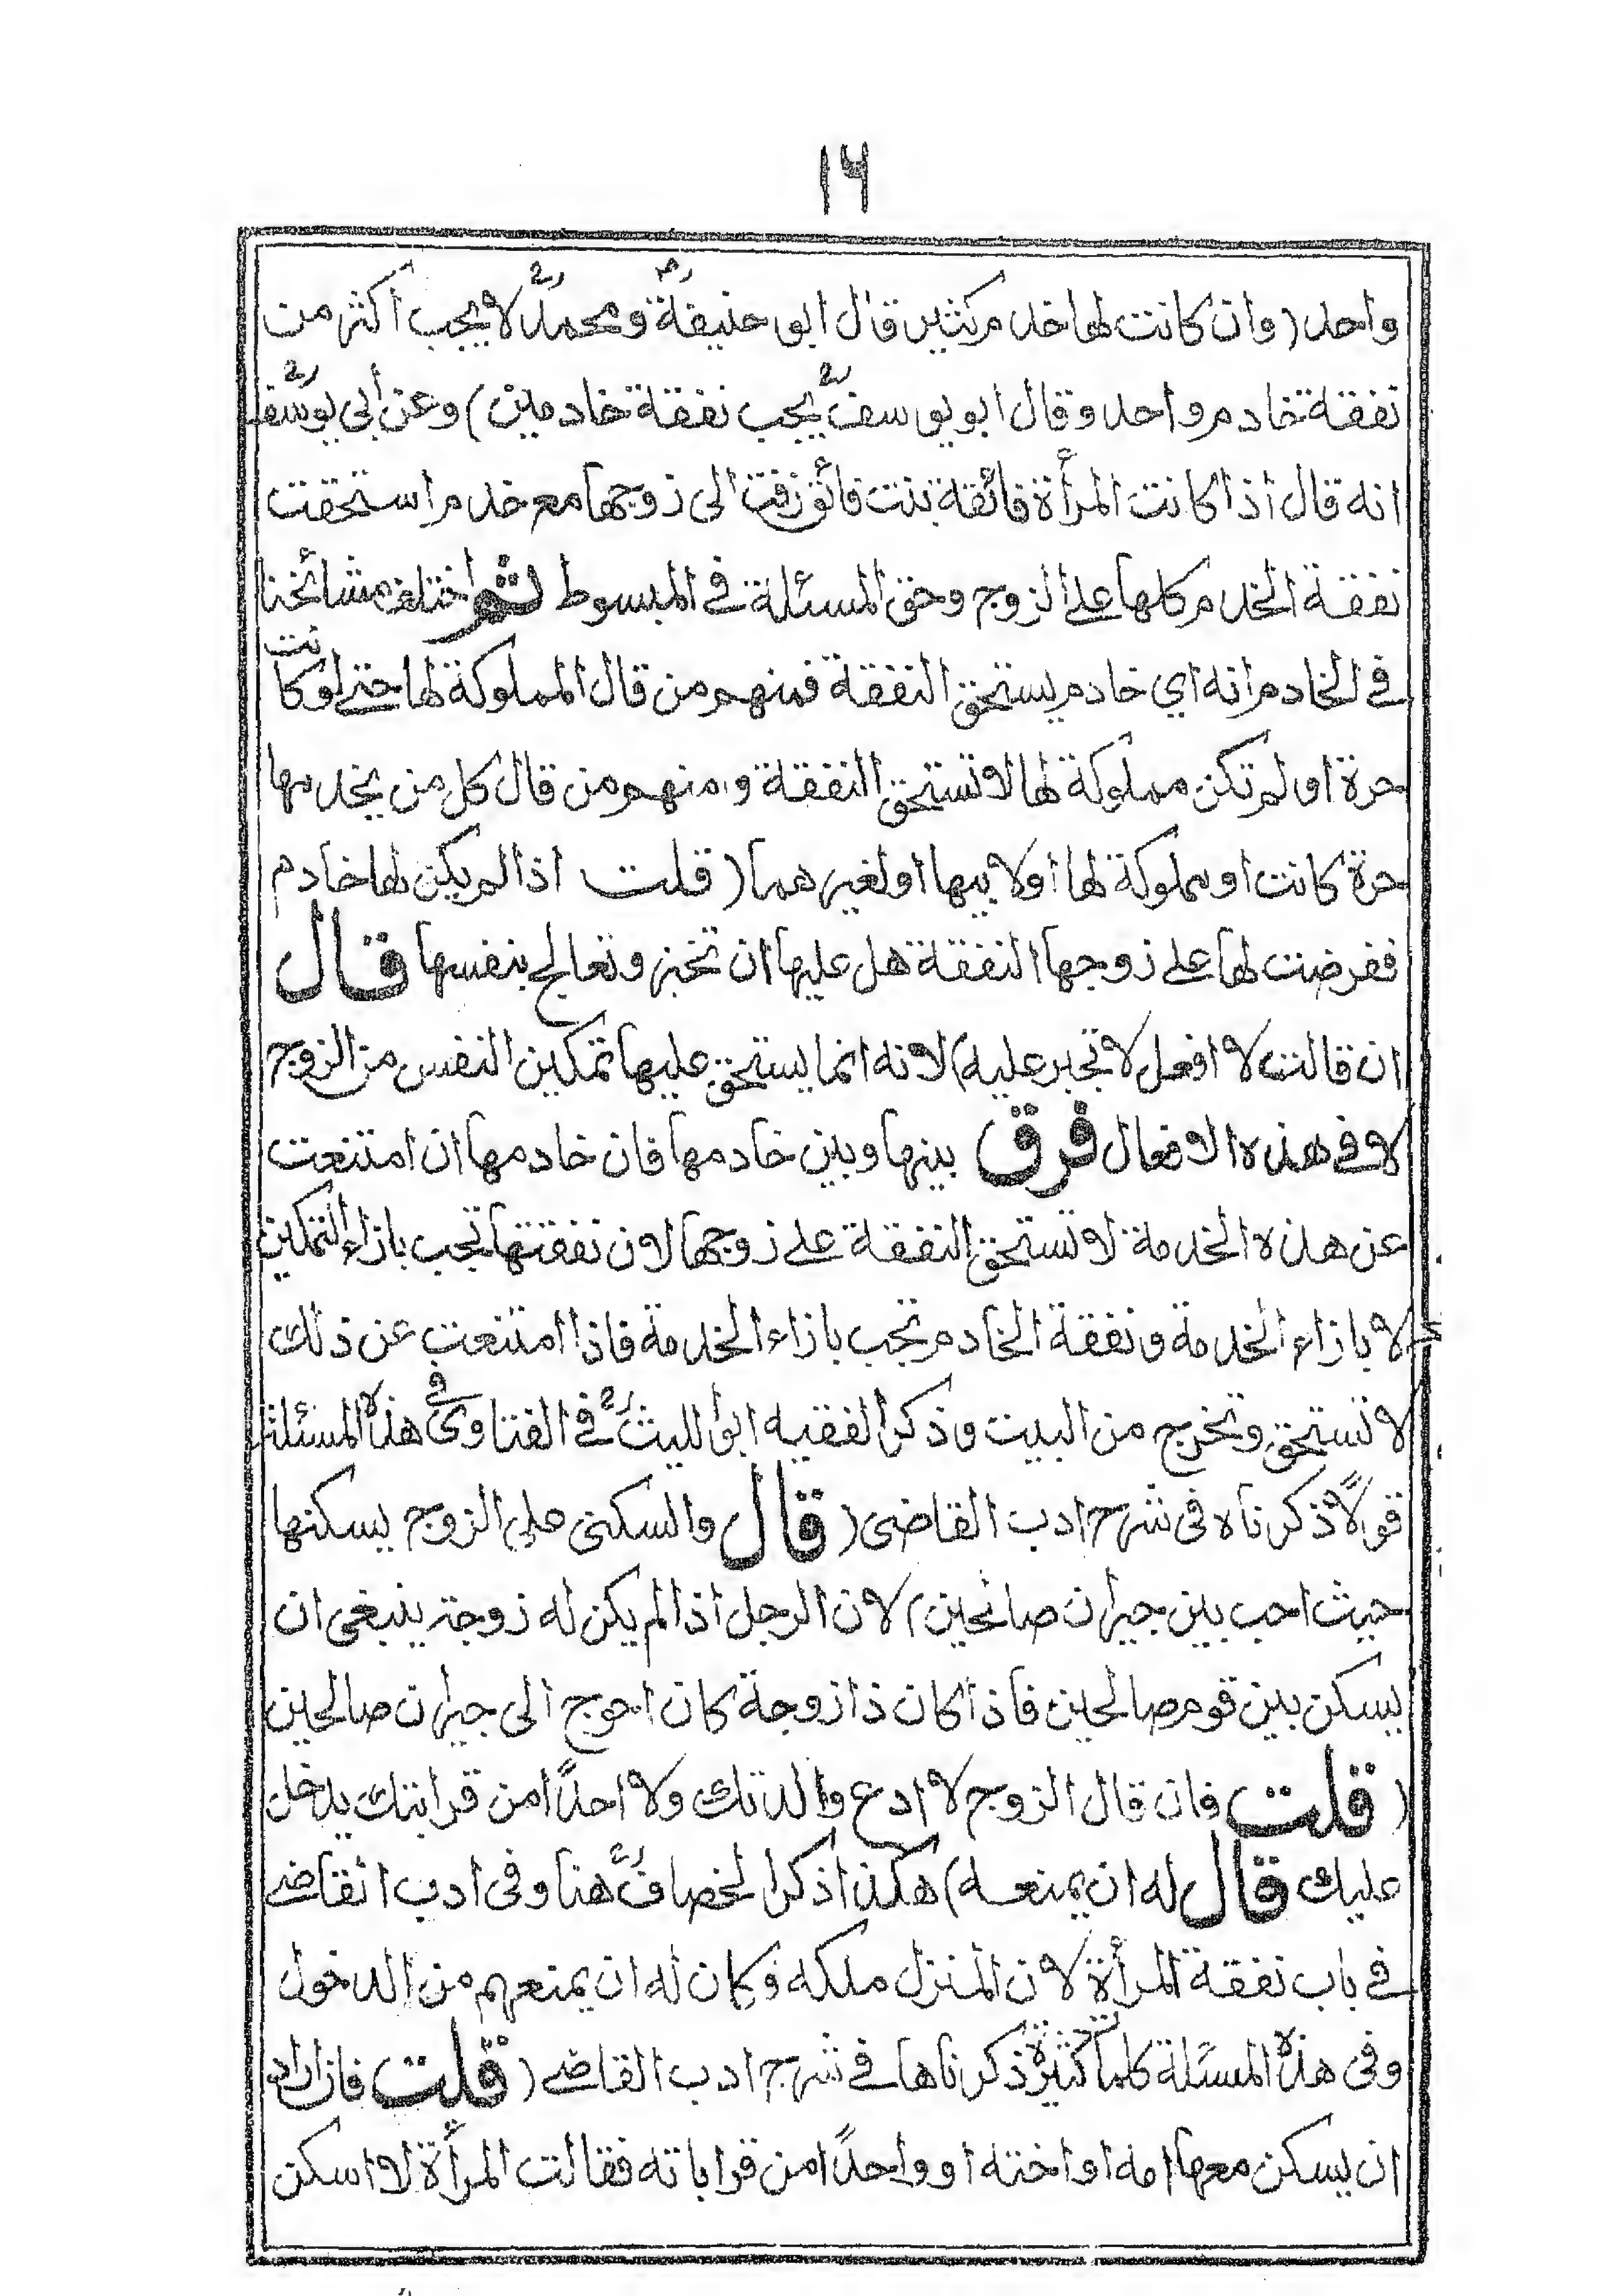 ١٦
واحد (وان كانت لها خدم كثير قال ابو حنيفة رح ومحمد رح لا يجب اكثر من
نفقة خادم واحد وقال ابو يوسف رح يجب نفقة خادمين) وعن أبي يوسف رح
انه قال اذا كانت المرأة فائقة بنت فائق زفت الى زوجها مع خدم استحقت
نفقة الخدم كلها على الزوج وحق المسئلة في المبسوط ثم اختلف مشائخنا
في الخادم انه اي خادم يستحق النفقة فمنهم من قال المملوكة لها حتى لو كانت
حرة او لم تكن مملوكة لها لا تستحق النفقة ومنهم من قال كل من يخدمها
حرة كانت او مملوكة لها اولا بيها او لغيرهما (قلت اذا لم يكن لها خادم
ففرضت لها على زوجها النفقة هل عليها ان تخبز وتعالج بنفسها قال
ان قالت لا افعل لا تجبر عليه) لانه انما يستحق عليها تمكين النفس من الزوج
لا في هذه الافعال فرق بينها وبين خادمها فان خادمها ان امتنعت
عن هذه الخدمة لا تستحق النفقة على زوجها لان نفقتها تجب بازاء التمكين
لا بازاء الخدمة ونفقة الخادم تجب بازاء الخدمة فاذا امتنعت عن ذلك
لا تستحق وتخرج من البيت وذكر الفقيه ابو الليث رح في الفتاوى في هذه المسئلة
قولاً ذكرناه في شرح ادب القاضي (قال والسكنى على الزوج يسكنها
حيث احب بين جيران صالحين) لان الرجل اذا لم يكن له زوجة ينبغي ان
يسكن بين قوم صالحين فاذا كان ذا زوجة كان احوج الى جيران صالحين
(قلت فان قال الزوج لا ادع والدتك ولا احداً من قرابتك يدخل
عليك قال له ان يمنعه) هكذا ذكر الخصاف رح هنا وفي ادب القاضي
في باب نفقة المرأة لان المنزل ملكه فكان له ان يمنعهم من الدخول
وفي هذه المسئلة كلمات كثيرة ذكرناها في شرح ادب القاضي (قلت فان اراد
ان يسكن معها امه او اخته او واحداً من قراباته فقالت المرأة لا اسكن